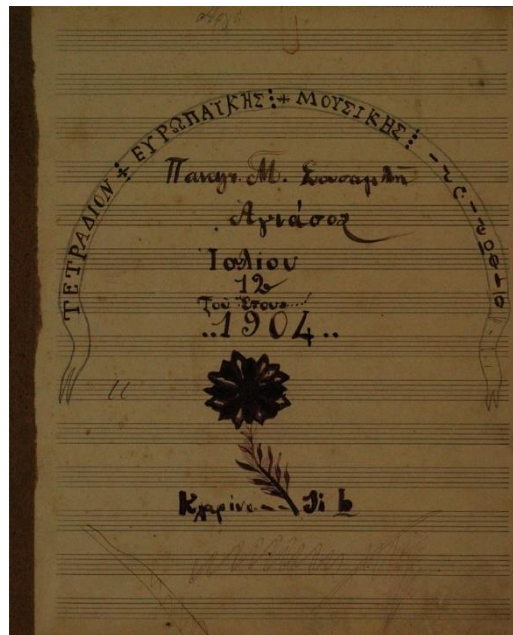 ΤΕΤΡΑΔΙΟΝ ⁝ ΕΥΡΩΠΑΪΚΗΣ ⁝+ ΜΟΥΣΙΚΗΣ ⁝
Παναγ. Μ. Σουσαμλή
Αγιάσος
Ιουλίου
12
Τού Έτους
..1904..
Κλαρίνο -- Si b